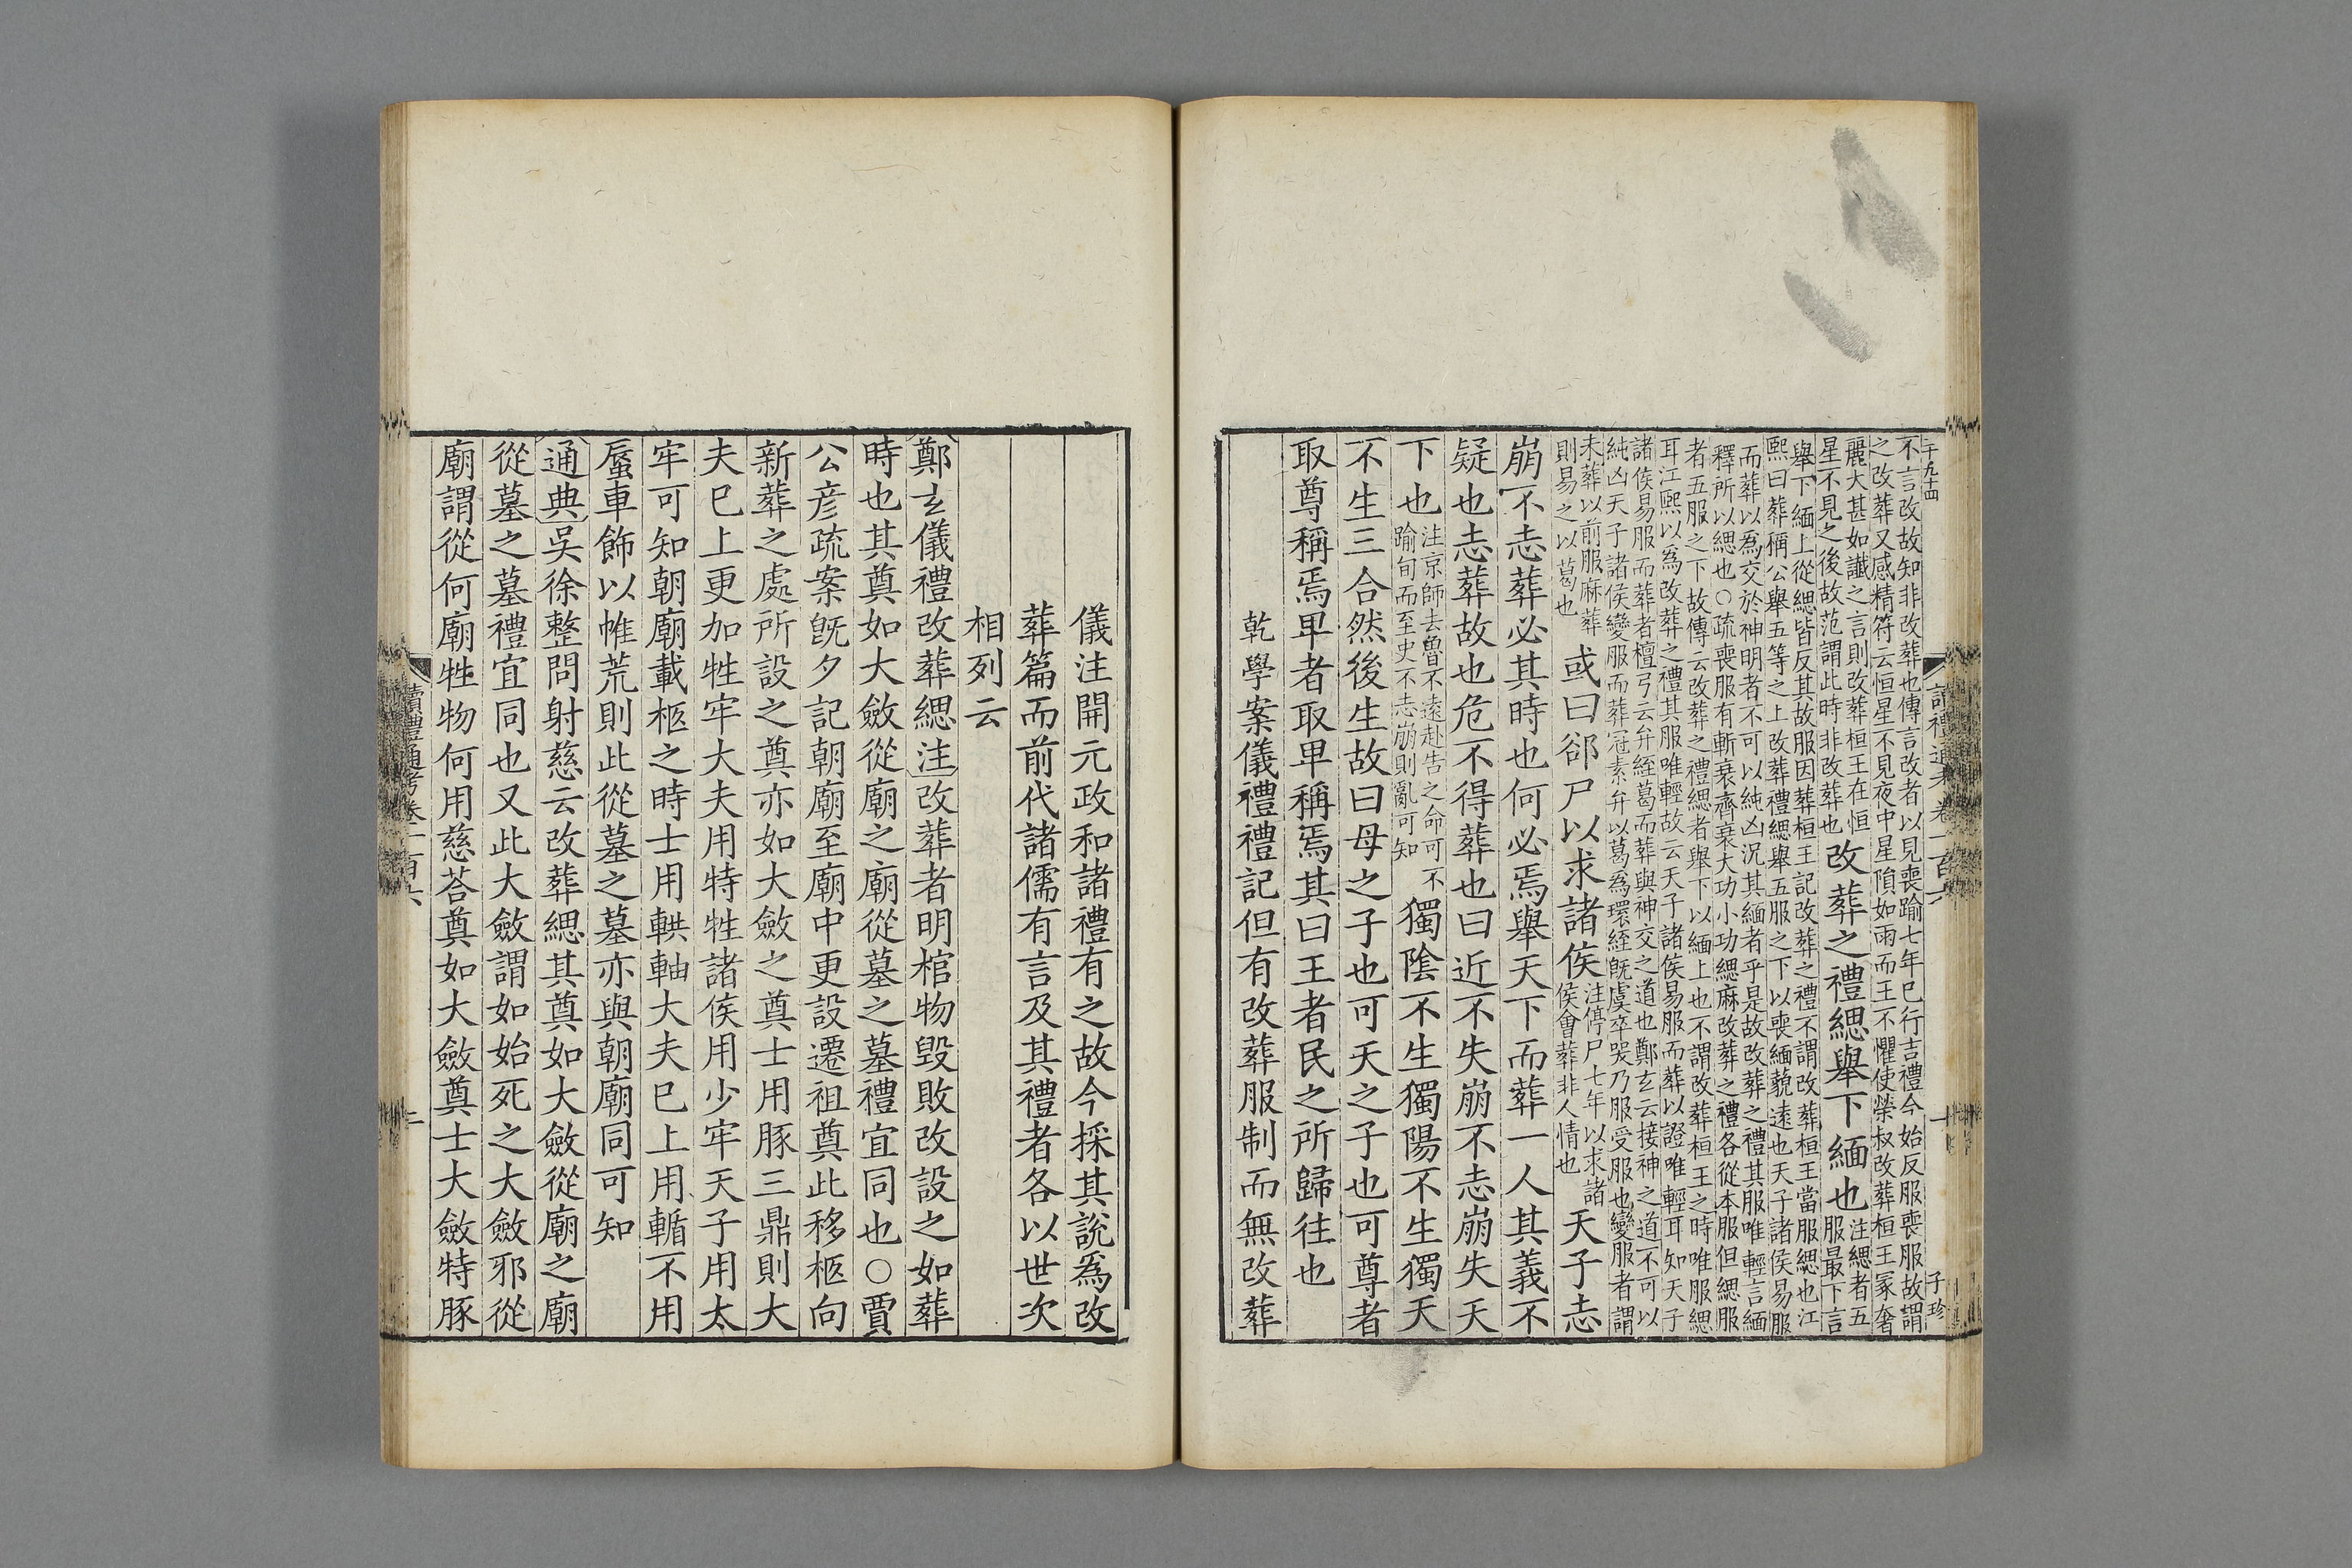 不言改故知非改葬也傳言改者以見喪踰七年已行吉禮今始反服喪服故謂
之改葬又感精符云恒星不見夜中星隕如雨而王不懼使榮叔改葬桓王冢奢
麗大甚如讖之言則改葬桓王在恒
星不見之後故范謂此時非改葬也
改葬之禮緦舉下緬也
注緦者五
服最下言
舉下緬上從緦皆反其故服因葬桓王記改葬之禮不謂改葬桓王當服緦也江
熙曰葬稱公舉五等之上改葬禮緦舉五服之下以喪緬藐遠也天子諸侯易服
而葬以為交於神明者不可以純凶況其緬者乎是故改葬之禮其服唯輕言緬
釋所以緦也○疏喪服有斬衰齊衰大功小功緦麻改葬之禮各從本服但緦服
者五服之下故傳云改葬之禮緦者舉下以緬上也不謂改葬桓王之時唯服緦
耳江熙以為改葬之禮其服唯輕故云天子諸侯易服而葬以證唯輕耳知天子
諸侯易服而葬者檀弓云弁絰葛而葬與神交之道也鄭玄云接神之道不可以
純凶天子諸侯變服而葬冠素弁以葛為環絰既虞卒哭乃服受服也變服者謂
未葬以前服麻葬
則易之以葛也
或曰郤尸以求諸侯
注停尸七年以求諸
侯會葬非人情也
天子志
崩不志葬必其時也何必焉舉天下而葬一人其義不
疑也志葬故也危不得葬也曰近不失崩不志崩失天
下也
注京師去魯不遠赴告之命可不
踰旬而至史不志崩則亂可知
獨陰不生獨陽不生獨天
不生三合然後生故曰母之子也可天之子也可尊者
取尊稱焉卑者取卑稱焉其曰王者民之所歸往也
乾學案儀禮禮記但有改葬服制而無改葬
儀注開元政和諸禮有之故今採其說為改
葬篇而前代諸儒有言及其禮者各以世次
相列云
鄭玄儀禮改葬緦注改葬者明棺物毀敗改設之如葬
時也其奠如大斂從廟之廟從墓之墓禮宜同也○賈
公彥疏案旣夕記朝廟至廟中更設遷祖奠此移柩向
新葬之處所設之奠亦如大斂之奠士用豚三鼎則大
夫已上更加牲牢大夫用特牲諸侯用少牢天子用太
牢可知朝廟載柩之時士用輁軸大夫已上用輴不用
蜃車飾以帷荒則此從墓之墓亦與朝廟同可知
通典吳徐整問射慈云改葬緦其奠如大斂從廟之廟
從墓之墓禮宜同也又此大斂謂如始死之大斂邪從
廟謂從何廟牲物何用慈荅奠如大斂奠士大斂特豚